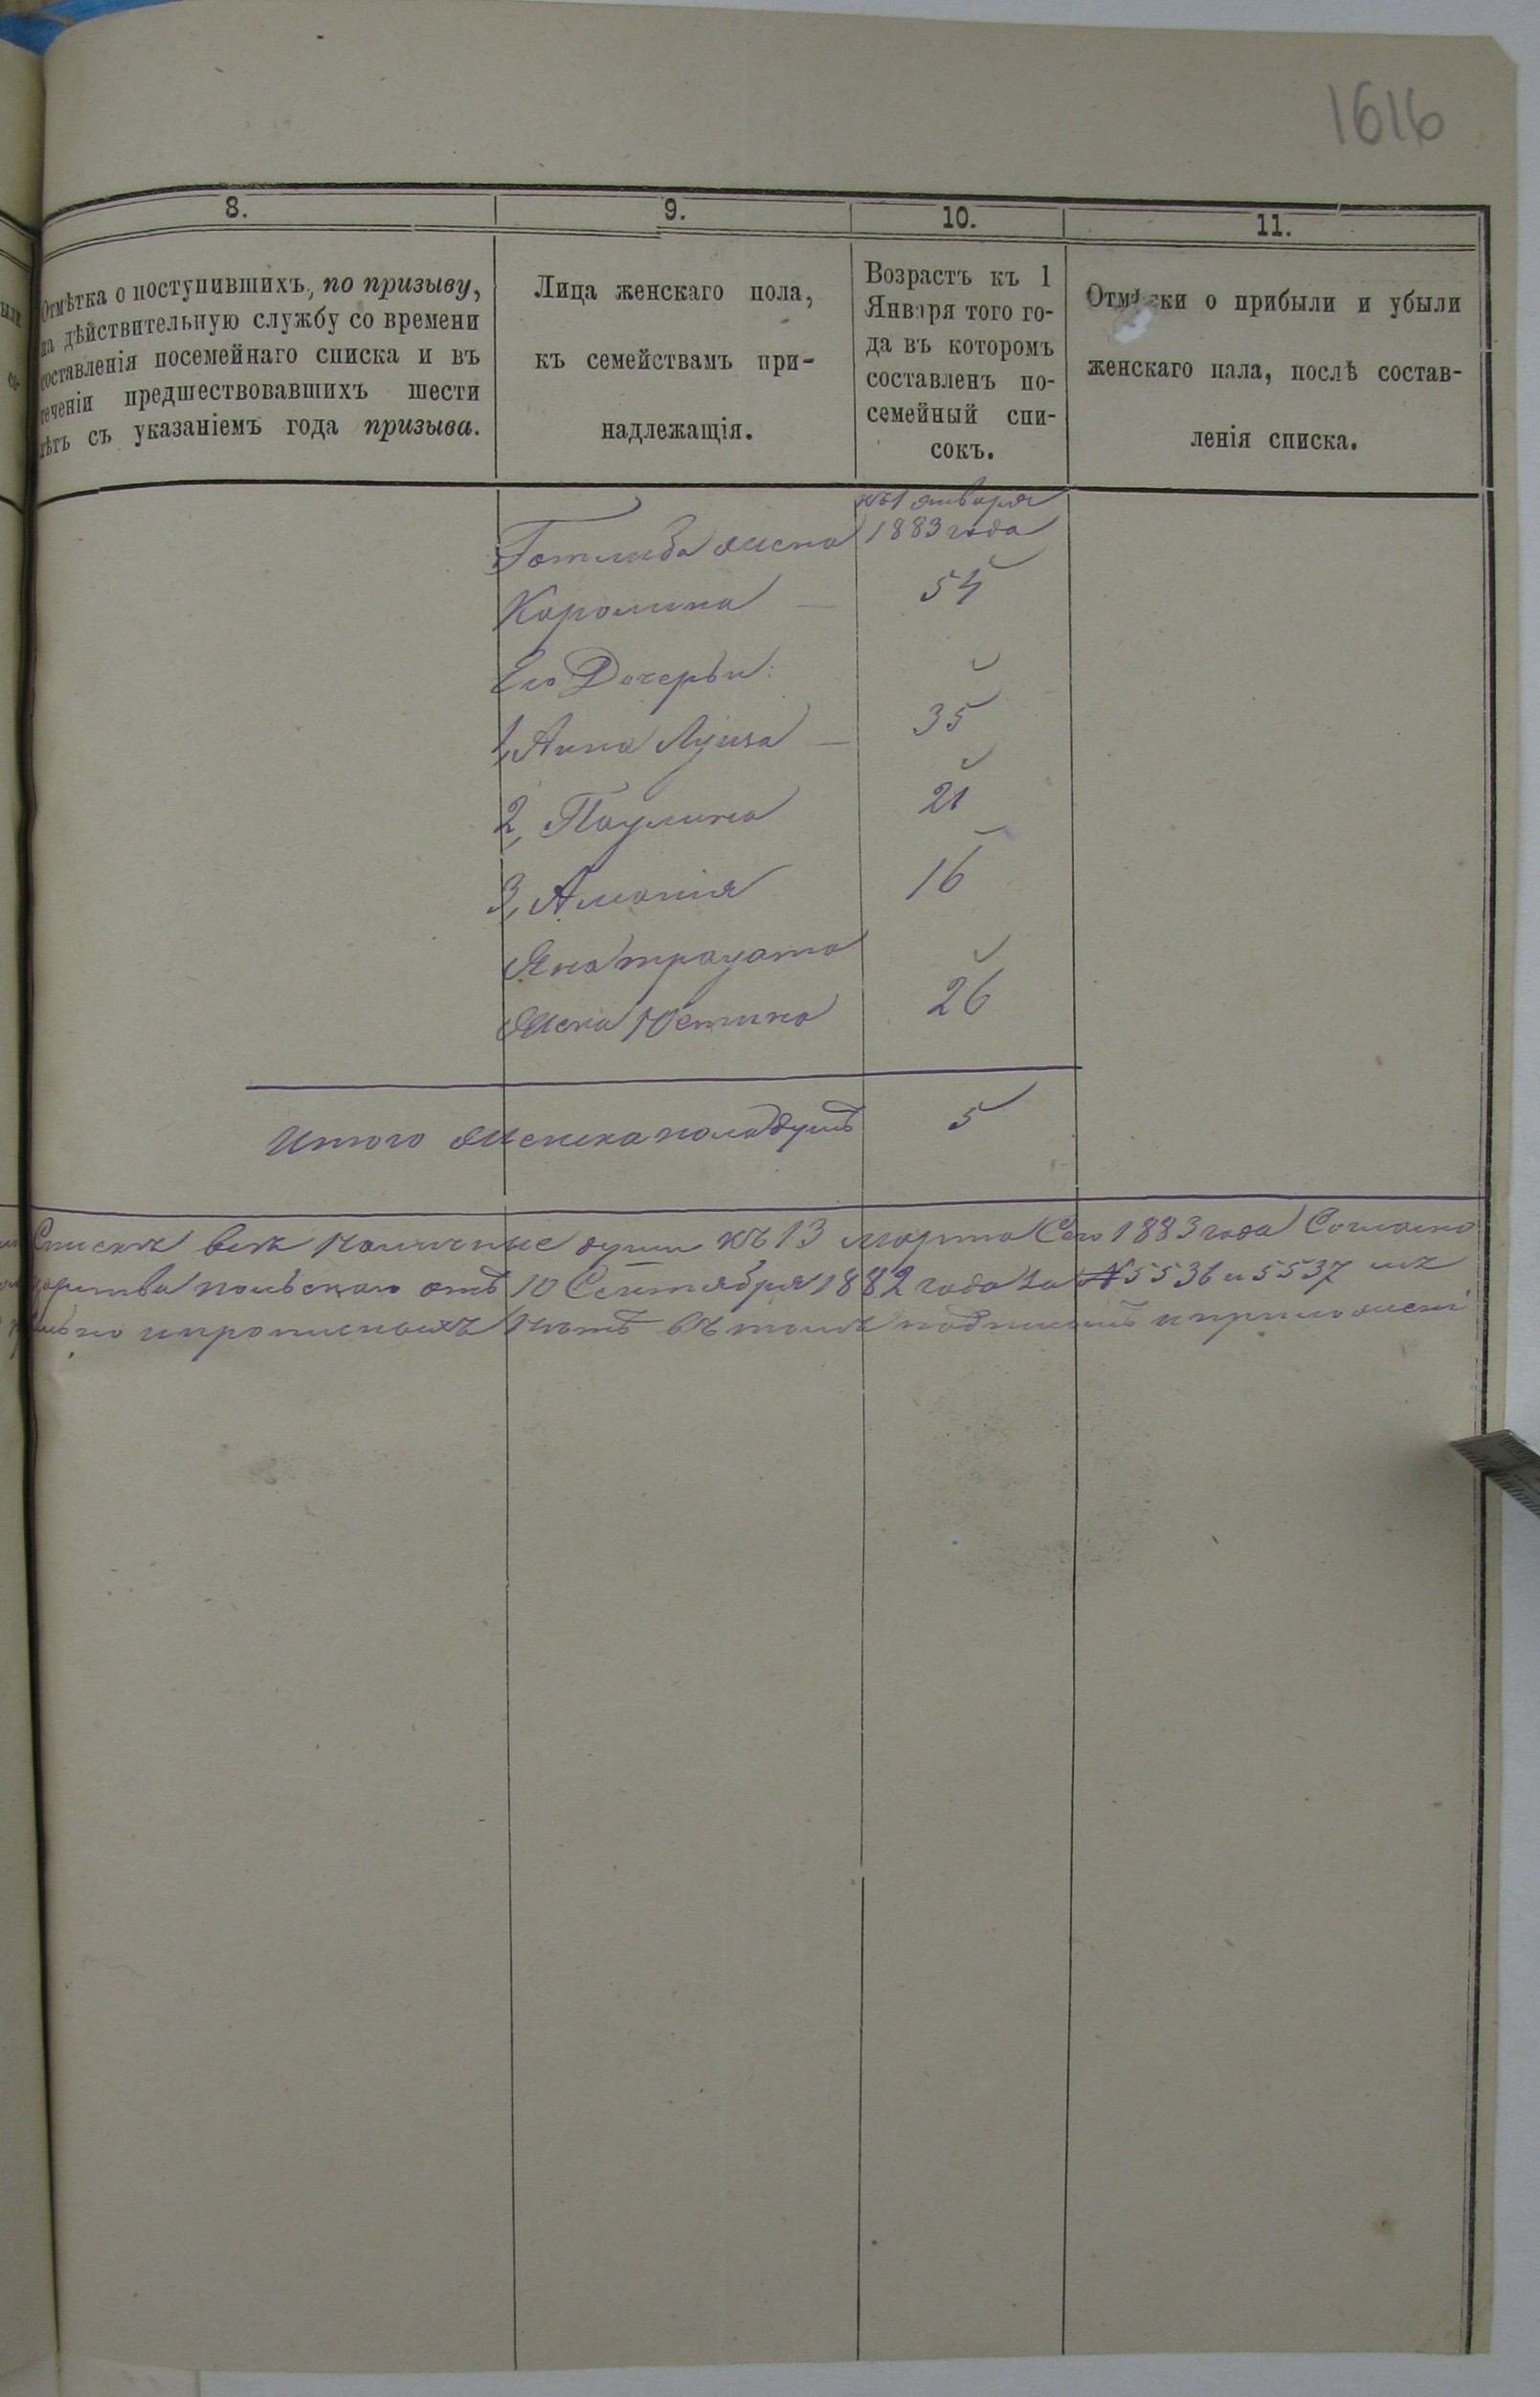 1616
8.
9.
10.
11.
Отмѣтка о поступившихъ, по призыву,
на дѣйствительную службу со времени
составленія посемейнаго списка и въ
теченіи предшествовавшихъ шести
лѣтъ съ указаніемъ года призыва.
Лица женскаго пола,
къ семействамъ при-
надлежащія.
Возрастъ къ 1
Января того го-
да въ которомъ
составленъ по-
семейный спи-
сокъ.
Отмѣтки о прибыли и убыли
женскаго пала, послѣ состав-
ленія списка.
къ 1 января
Готлиба жена 1883 года
Каролина — 54
Его Дочерьи:
1, Анна Луиза — 35
2, Паулина 21
3, Амалия 16
26
жена Юстина
Итого женска пола душъ 5
Списск все наличные души къ 13 марта Сего 1883 года Согласно
польскаго отъ 10 Сентября 1882 года за № 5536 и 5537
и прописныхъ нѣтъ въ томъ